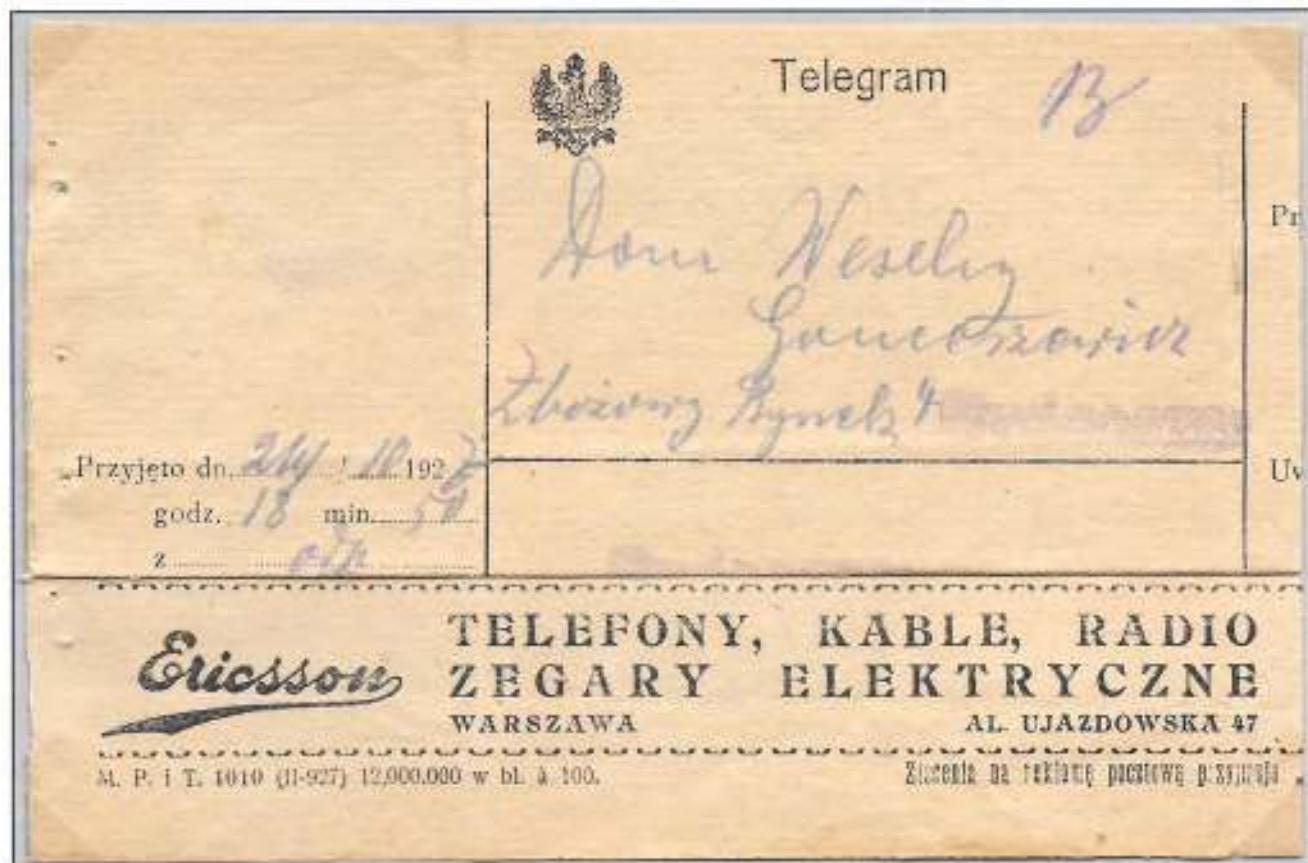 Telegram
Dom Weselny
Zbożowy Rynek 4
Pr
„Przyjęto dn. 24/10 1927
godz. 18 min. 50
z
Uw
Ericsson
TELEFONY, KABLE, RADIO
ZEGARY ELEKTRYCZNE
WARSZAWA AL. UJAZDOWSKA 47
M. P. i T. 1010 (II-927) 12,000.000 w bl. à 100. Zlecenia na reklamę pocztową przyjmuje „